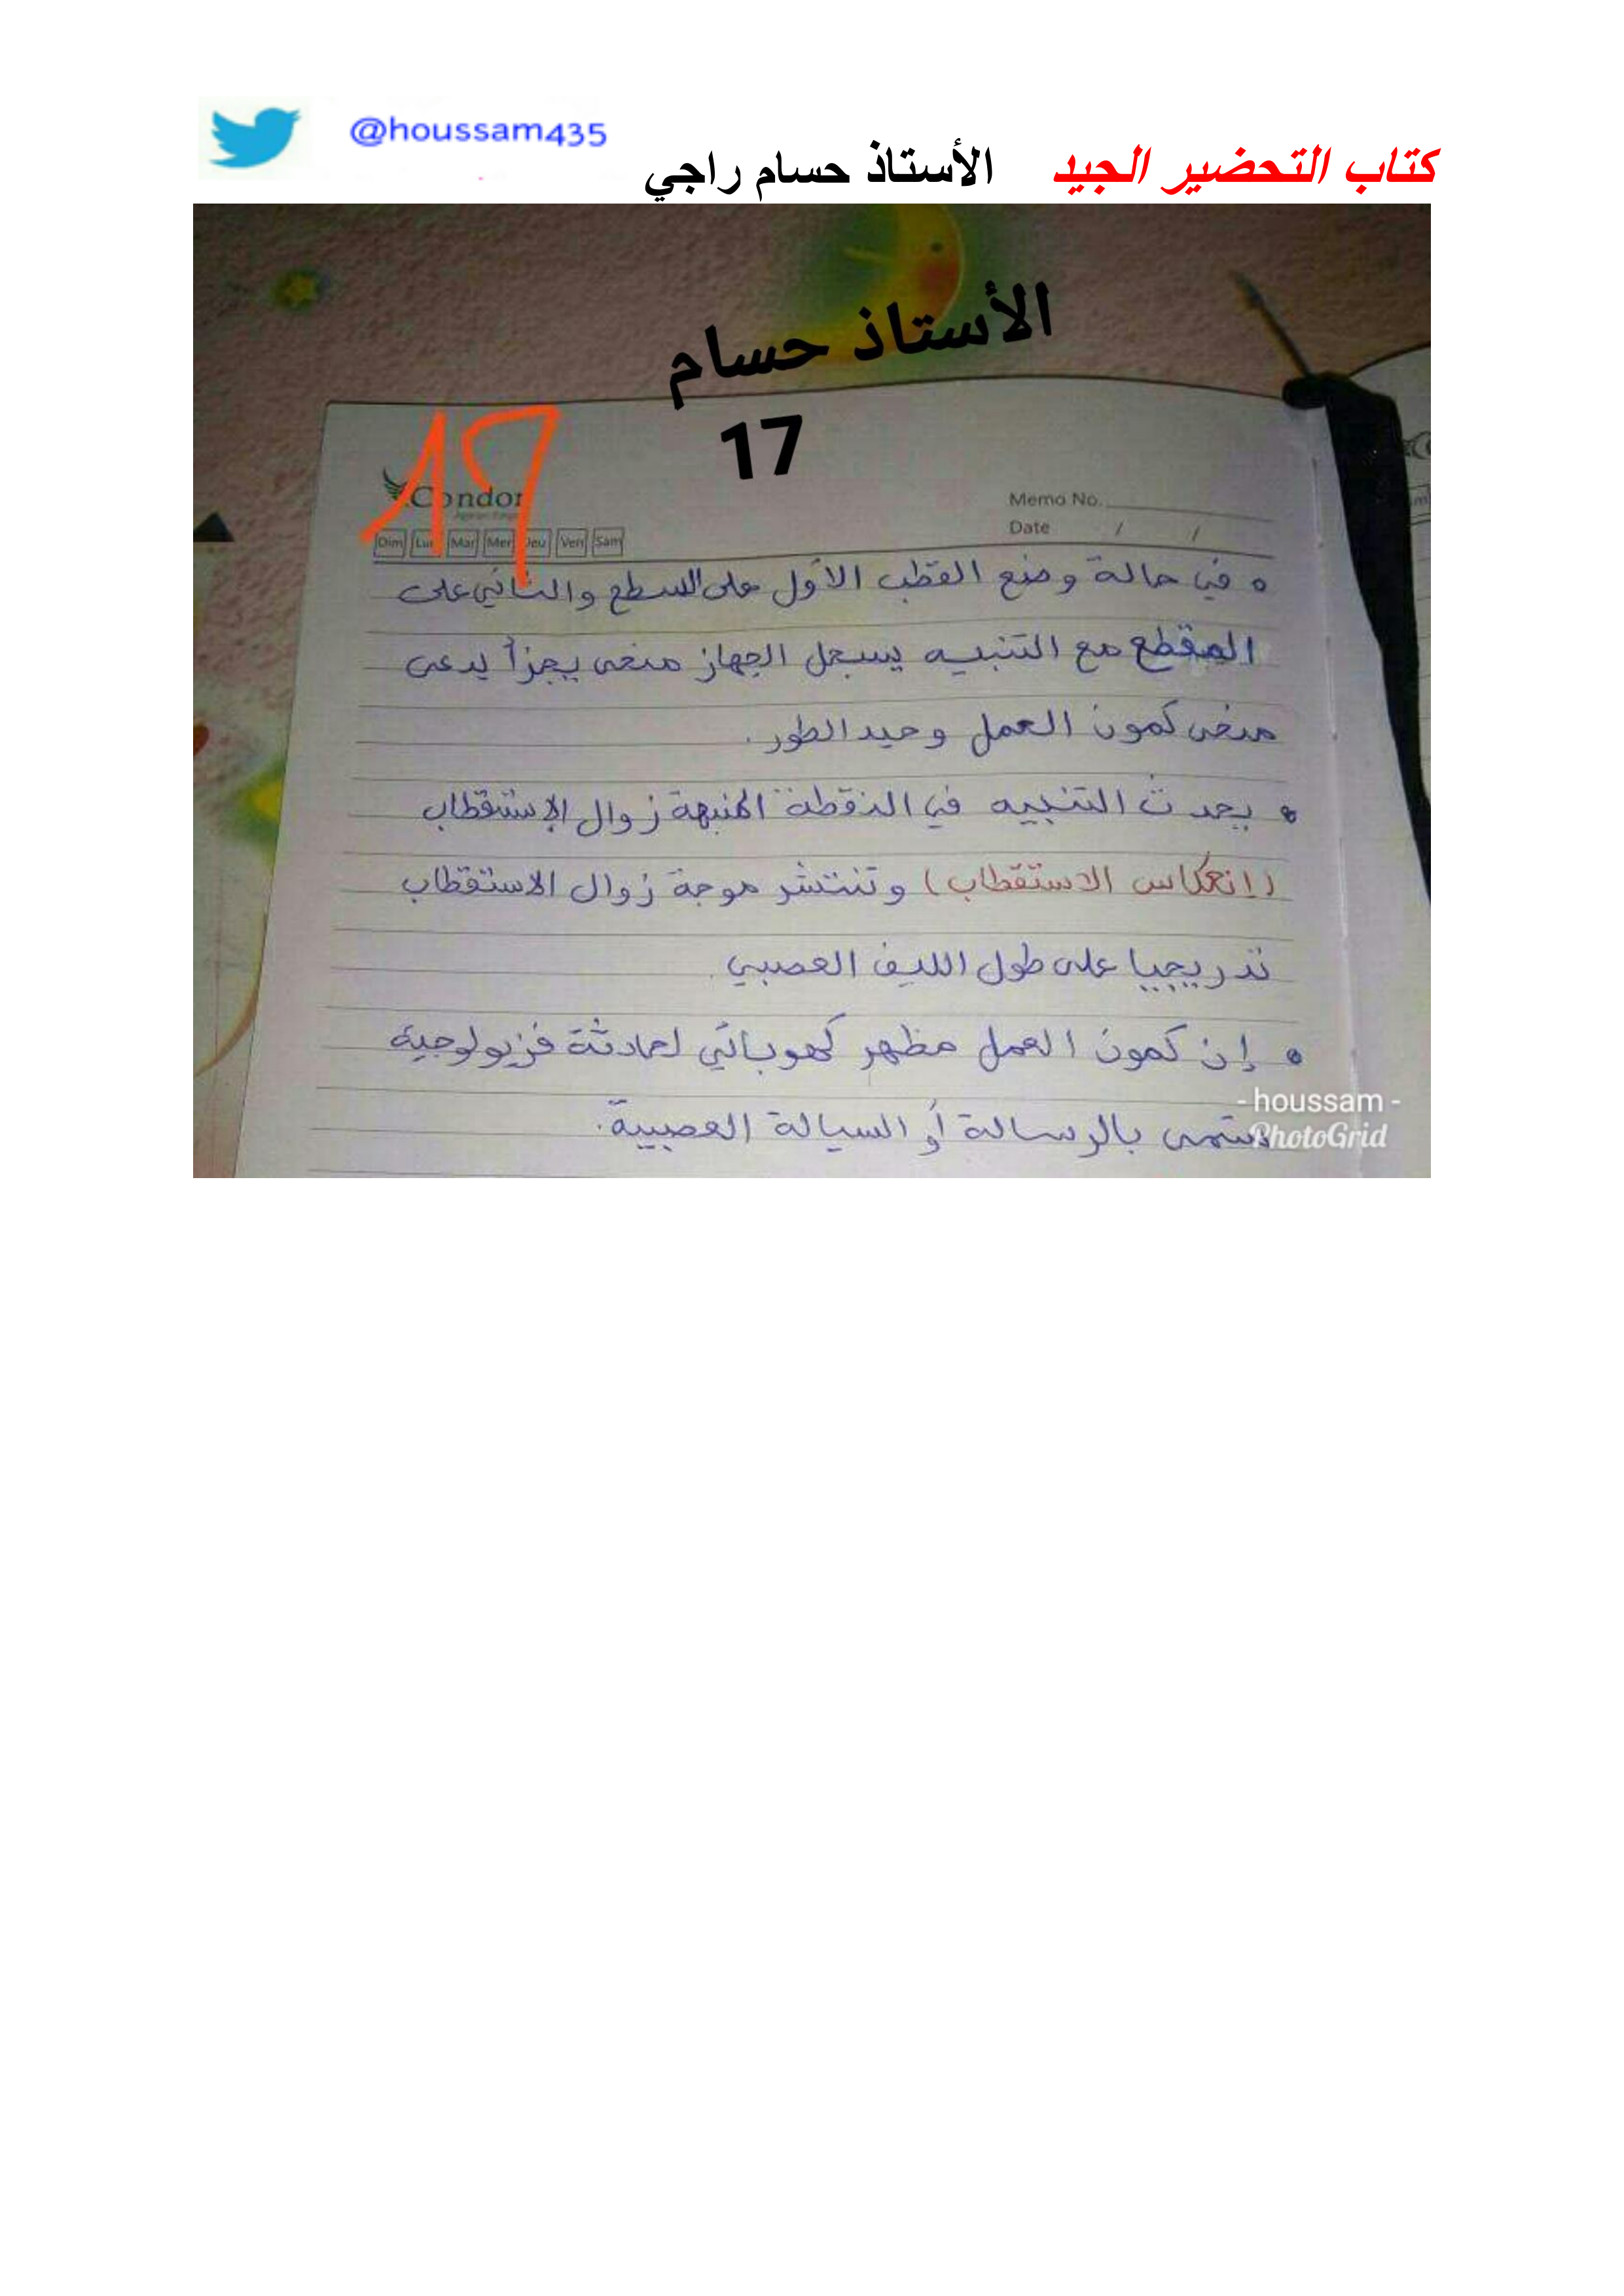 @houssam435
كتاب التحضير الجيد الأستاذ حسام راجي
الأستاذ حسام
17
17
Condor
Memo No.
Date / /
Dim Lun Mar Mer Jeu Ven Sam
• في حالة وضع القطب الأول على السطح والثاني على
المقطع مع التنبيه يسجل الجهاز منحى يجزأ يدعى
منحى كمون العمل وحيد الطور.
• يحدث التنبيه في النقطة المنبهة زوال الإستقطاب
(إنعكاس الاستقطاب) وتنتشر موجة زوال الاستقطاب
تدريجيا على طول الليف العصبي.
• إن كمون العمل مظهر كهربائي لحادثة فزيولوجية
تسمى بالرسالة أو السيالة العصبية.
- houssam -
PhotoGrid